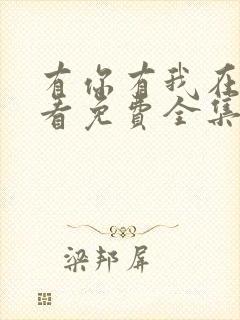 有你有我在
看免费全集
梁邦屏